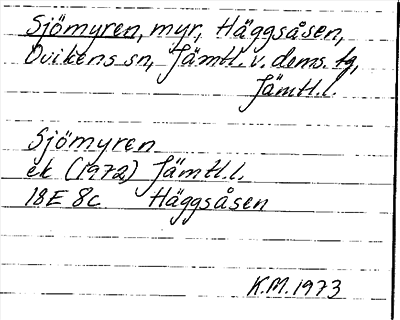 Sjömyren, myr, Häggsåsen,
Ovikens sn, Jämtl. v. doms. tg,
Jämtl.l.
Sjömyren
ek (1972) Jämtl.l.
18E 8c Häggsåsen
K.M. 1973